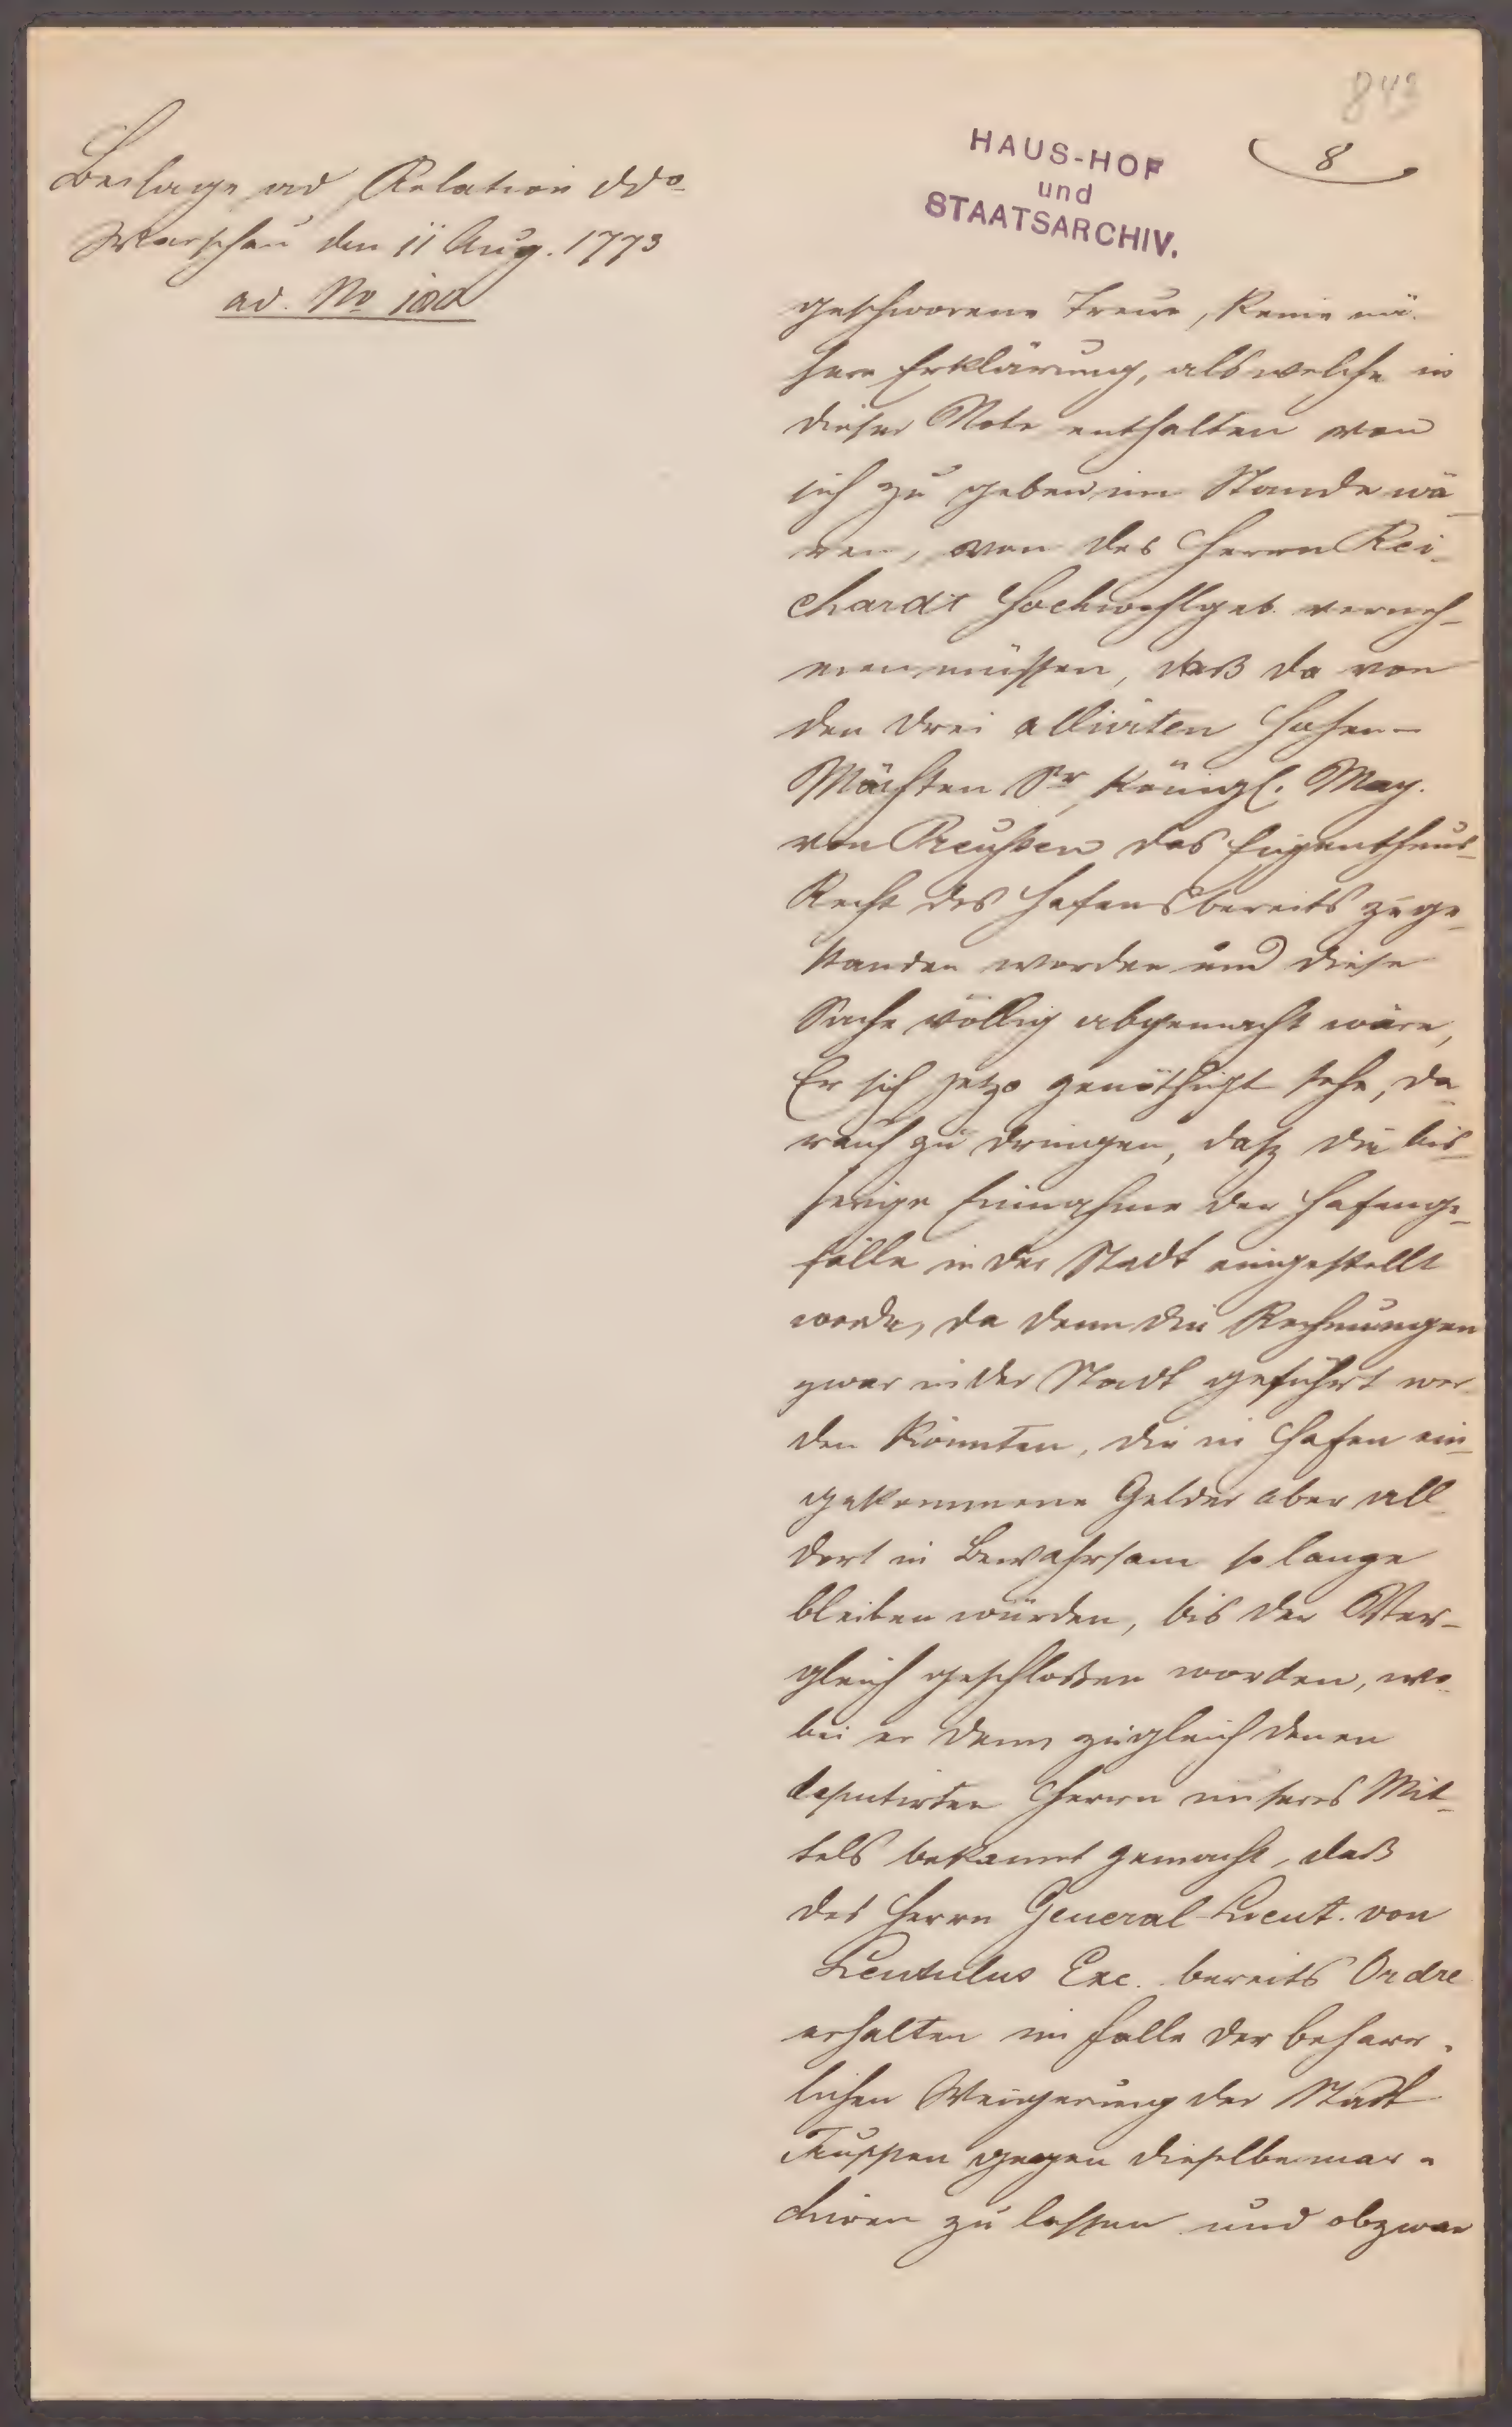 843
8
HAUS-HOF
und
STAATSARCHIV.
Beilage ad Relation ddo
Warschau den 11 Aug. 1773
ad. No
geschworene Treue, keine nä-
here Erklärung, als welche in
dieser Note enthalten von
sich zu geben im Stande wä-
ren, von des Herrn Rei-
chardt Hochwohlgeb. verneh-
men müssen, daß da von
den drei alliirten Hohen-
Mächten Sr Königl. May.
von Preußen das Eigenthums-
Recht des Hafens bereits zuge-
standen worden und diese
Sache völlig abgemacht wäre,
Er sich jetzo genöthigt sehe, da-
rauf zu dringen, daß die bis-
herige Einnahme der Hafenge-
fälle in der Stadt eingestellt
werde, da denn die Rechnungen
zwar in der Stadt geführt wer-
den könnten, die in Hafen ein-
gekommene Gelder aber all-
dort in Bewahrsam so lange
bleiben würden, bis der Ver-
gleich geschloßen worden, wo-
bei er denn zugleich denen
deputirten Herrn unseres Mit-
tels bekannt gemacht, daß
des Herrn General-Lieut. von
Lentulus Exc. bereits Ordre
erhalten im Falle der beharr-
lichen Weigerung der Stadt
Truppen gegen dieselbe mar-
chiren zu lassen und obzwar